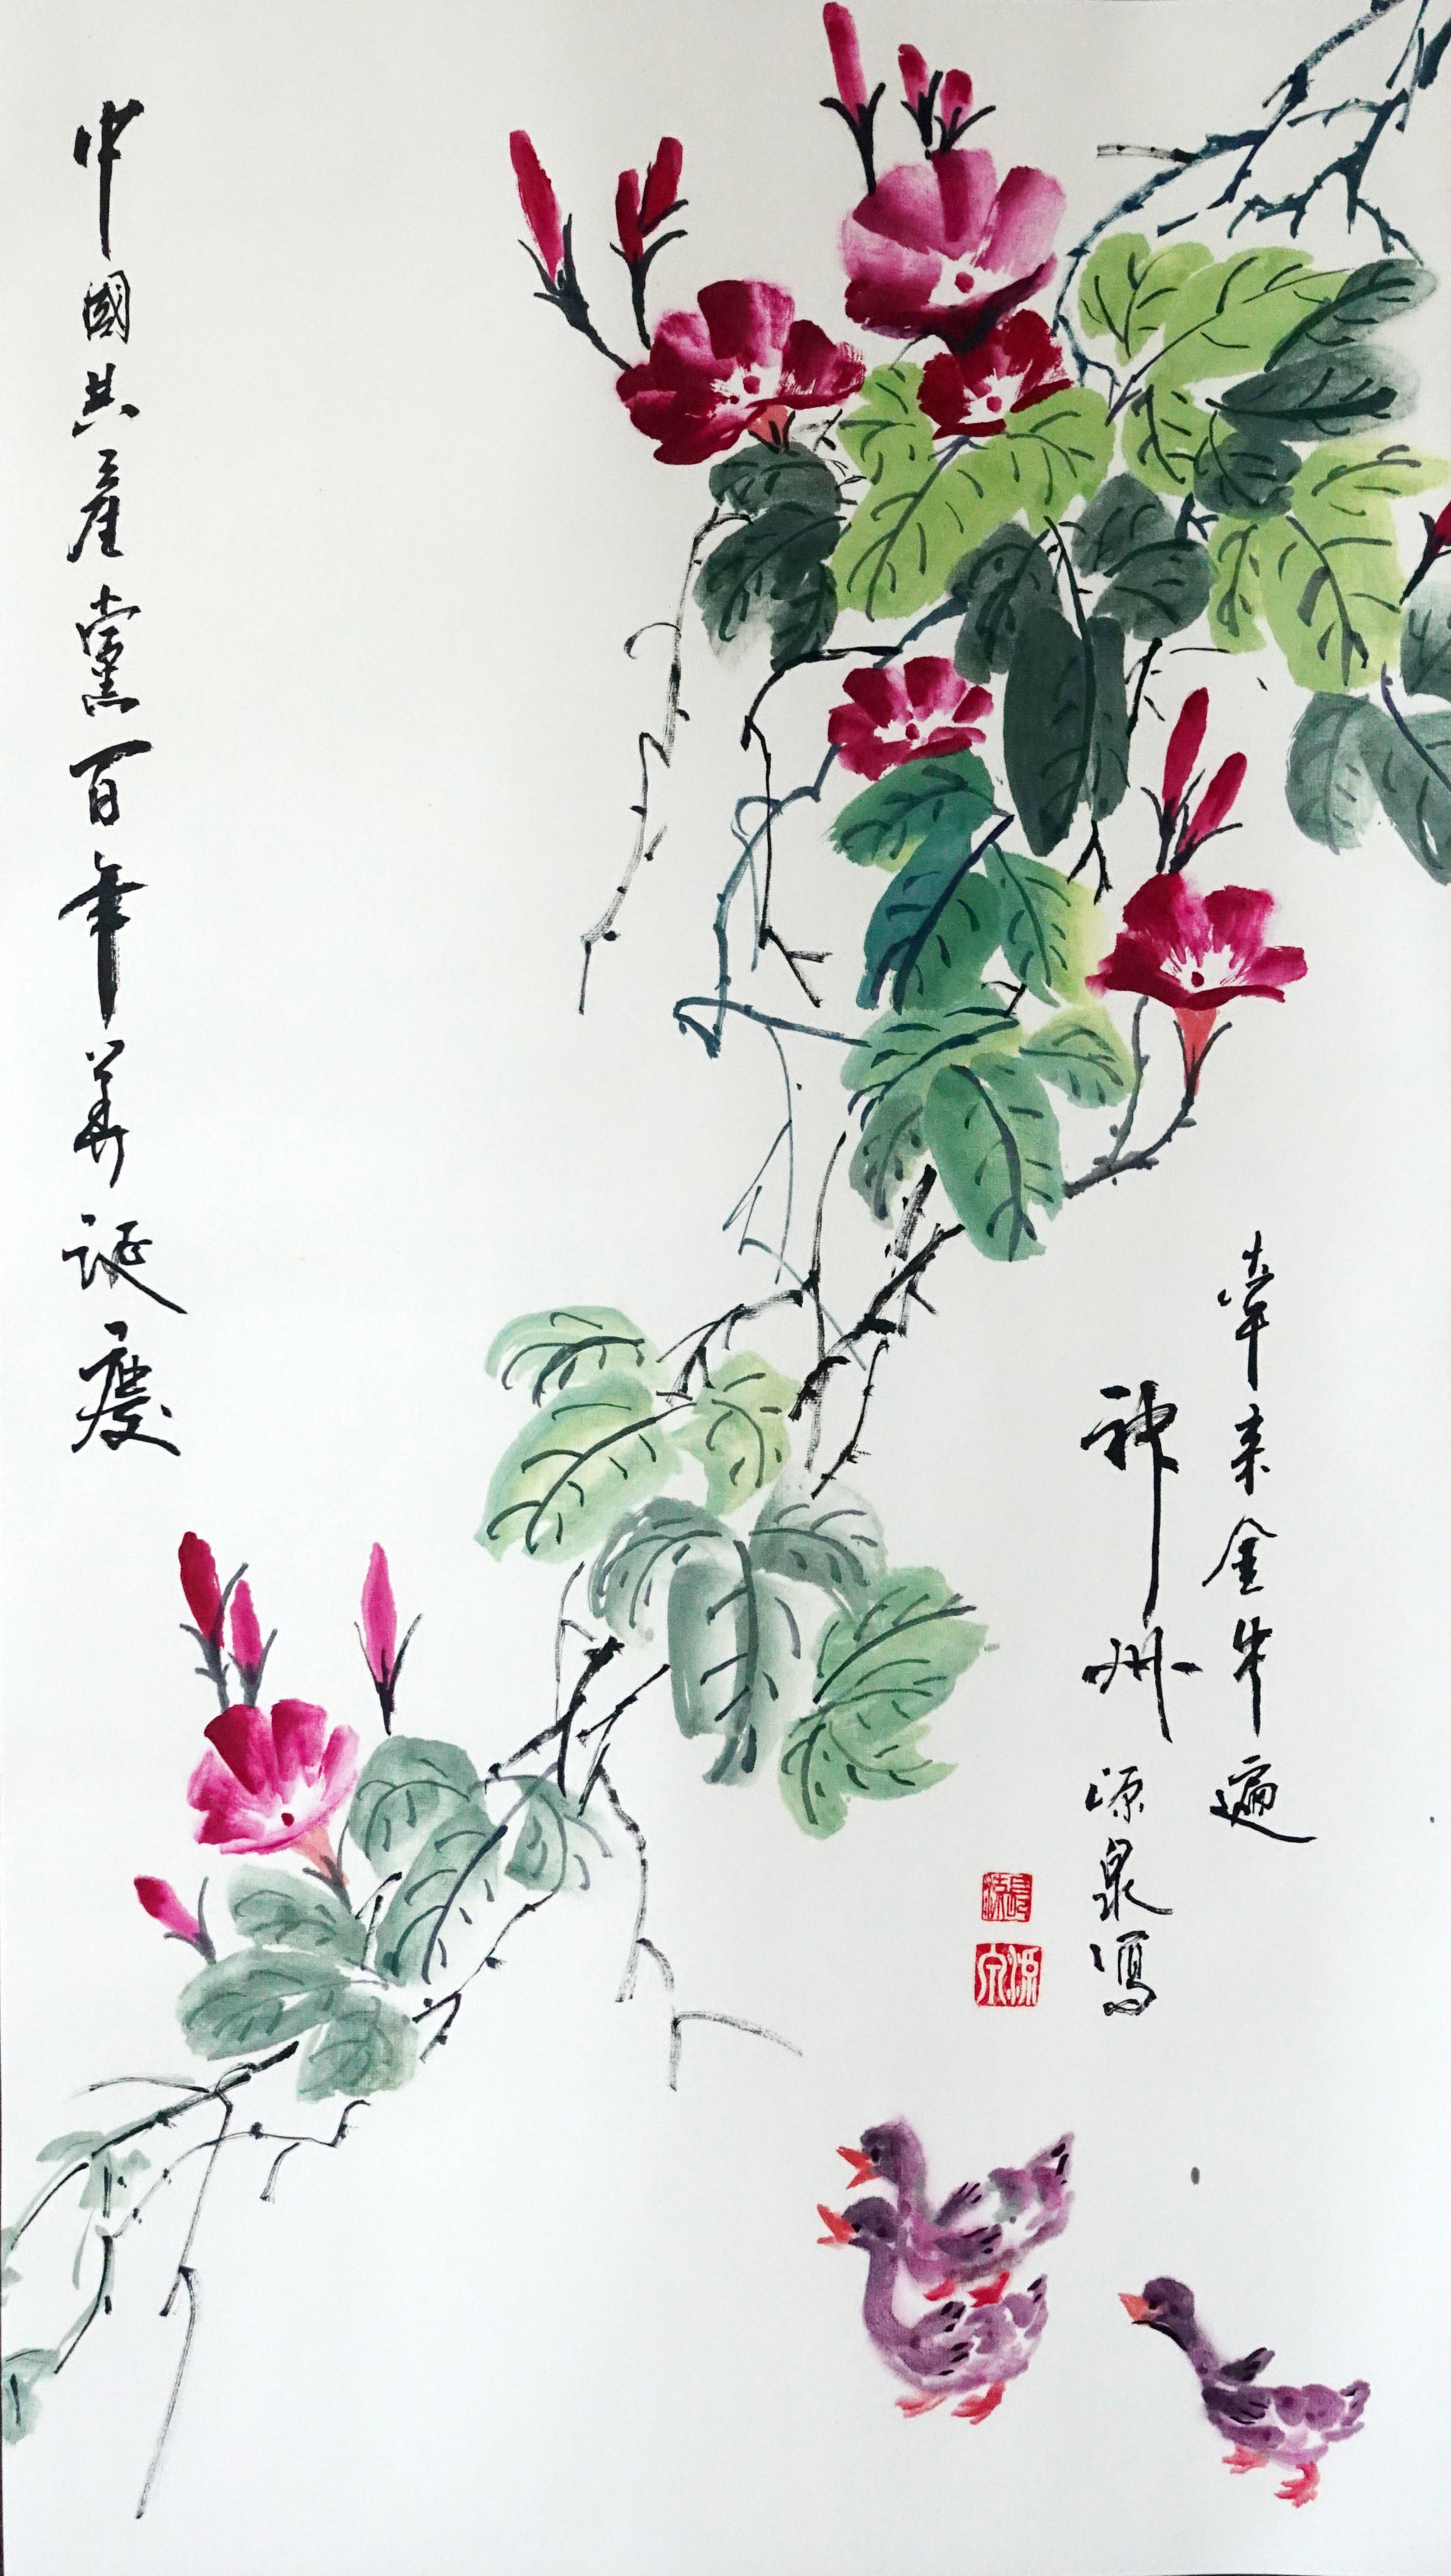 牽来金牛遍
神州 源泉寫
中國共產黨百年華誕慶